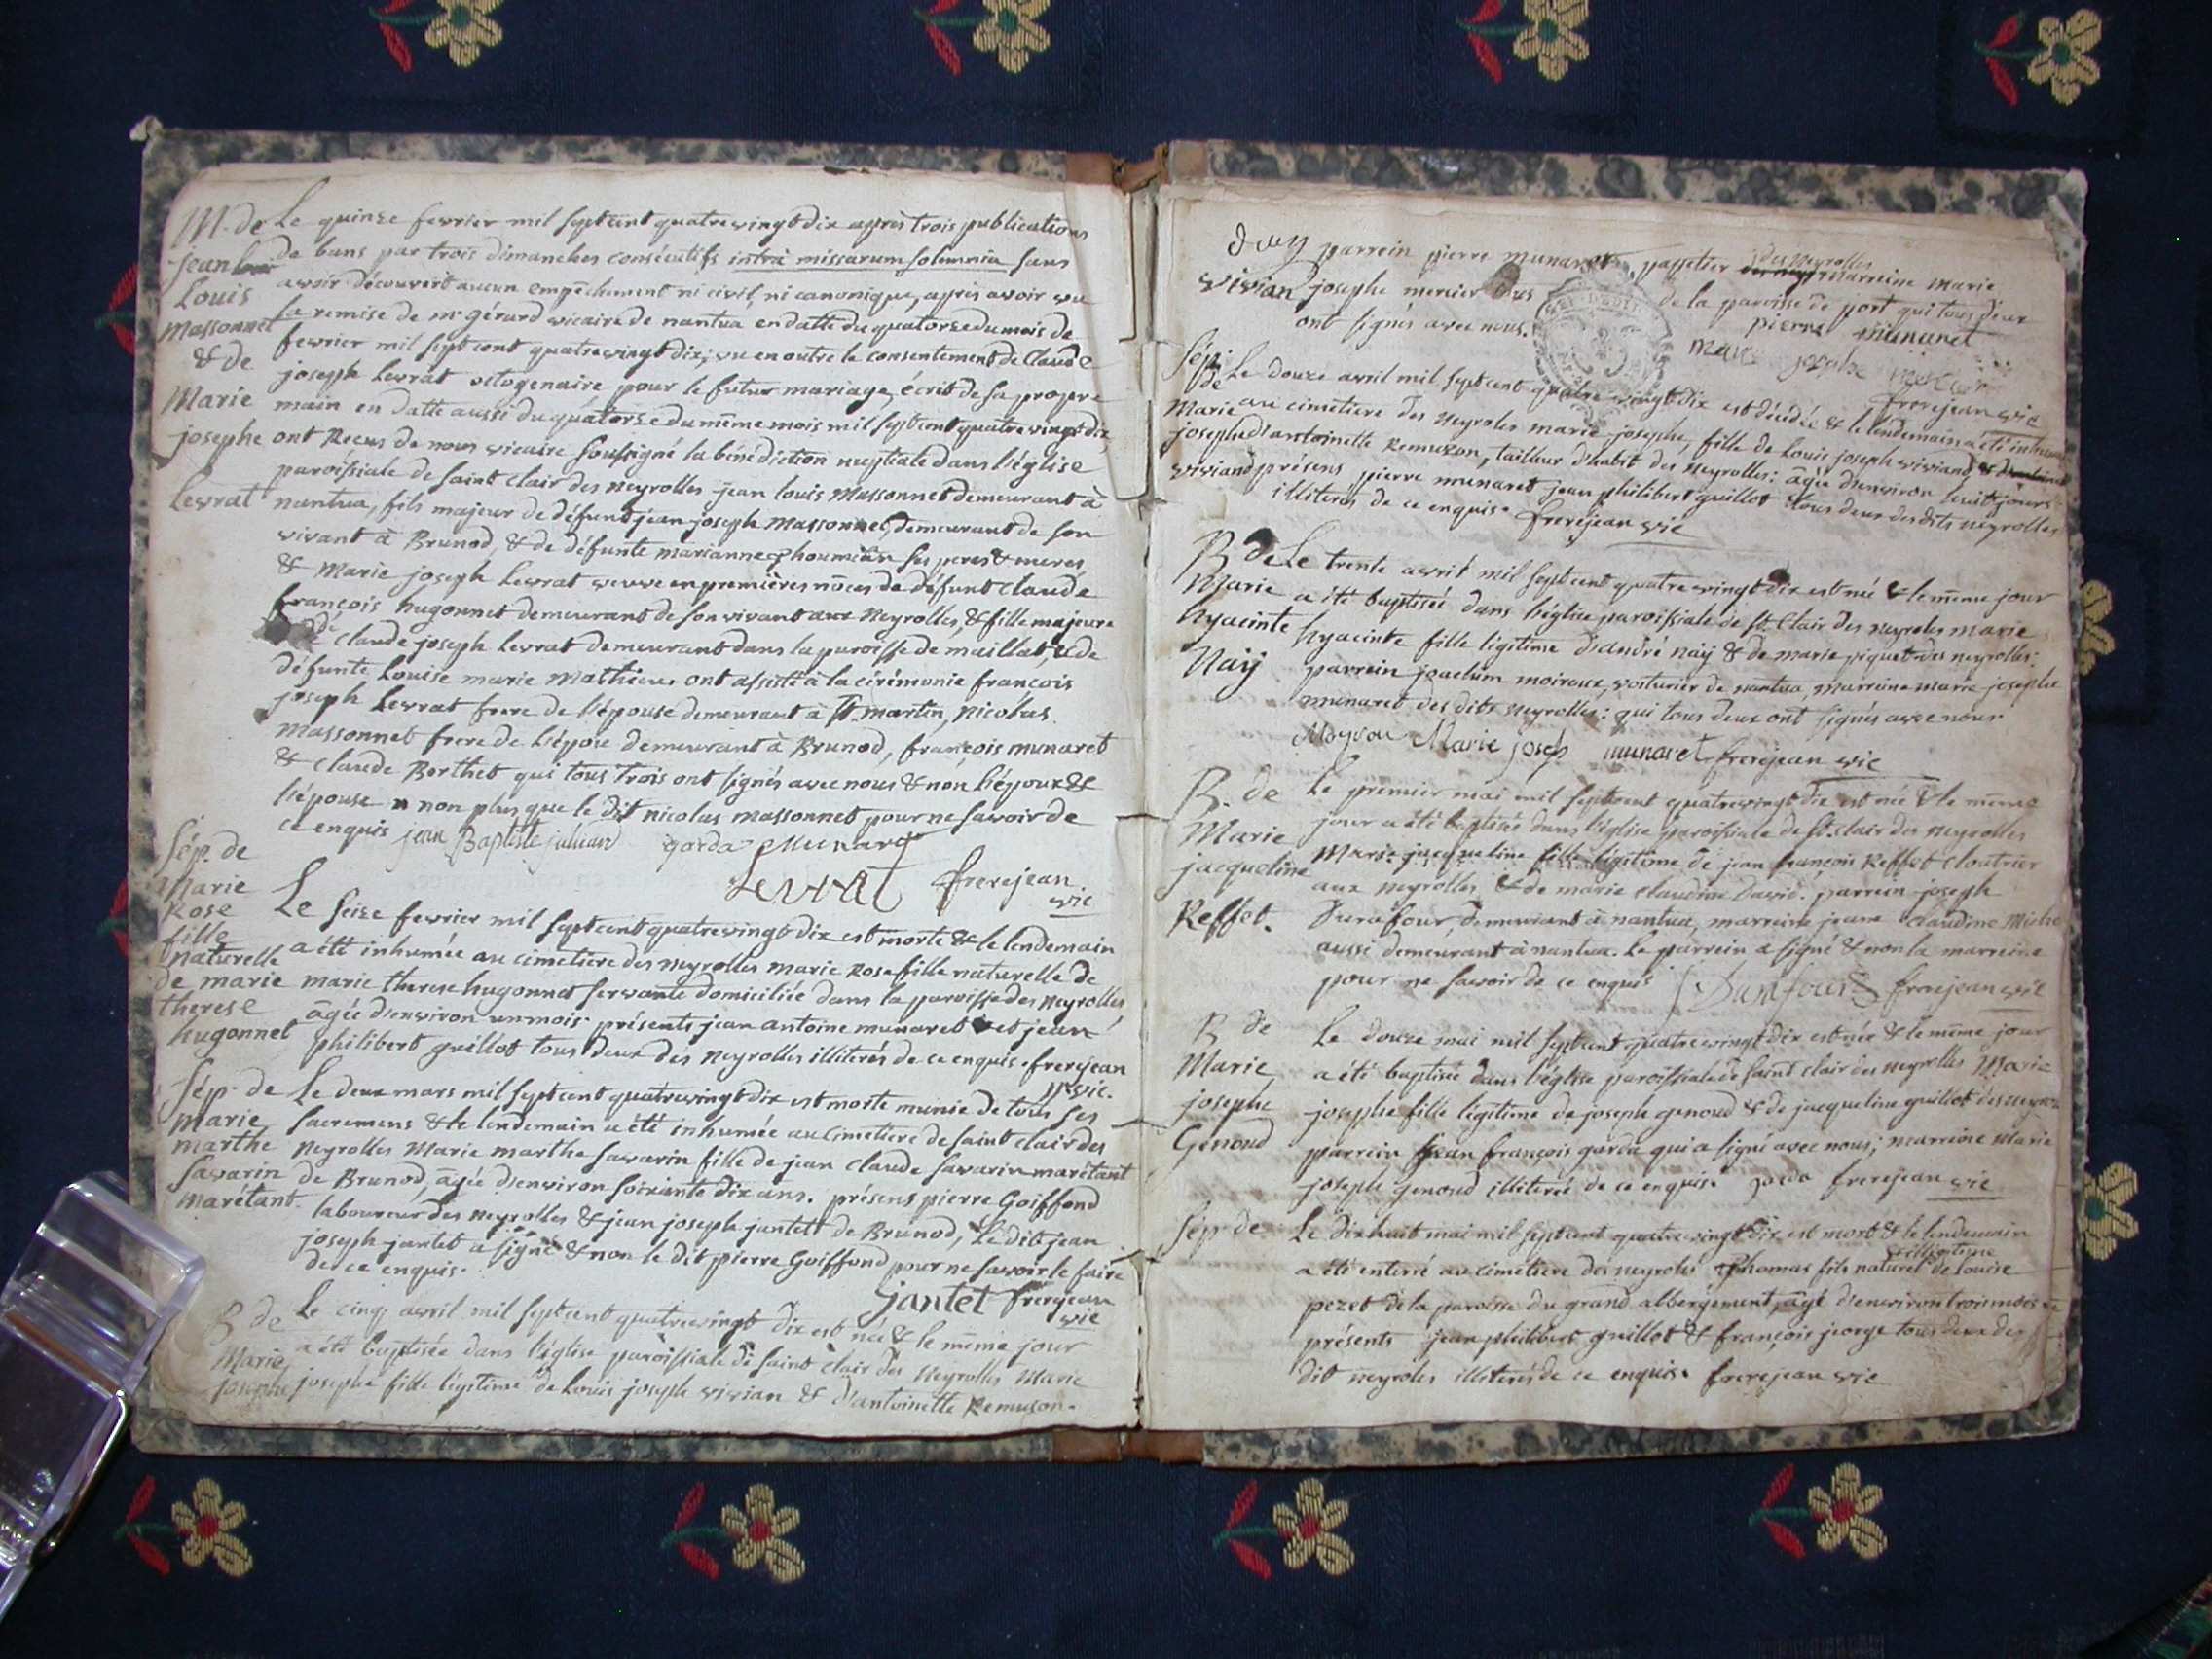 M. de
jean
Louis
Massonnet
& de
Marie
josephe
Levrat
Le quinze fevrier mil septcent quatrevingt dix après trois publications
de bans par trois dimanches consécutifs intrà missarum solemnia sans
avoir découvert aucun empêchement ni civil, ni canonique, après avoir vu
la remise de mr gérard vicaire de nantua en datte du quatorze du mois de
fevrier mil septcent quatrevingt dix; vu en outre le consentement de Claude
joseph Levrat octogenaire pour le futur mariage, écrit de sa propre
main en datte aussi du quatorze du même mois mil septcent quatre vingt dix,
ont Recus de nous vicaire soussigné la bénédiction nuptiale dans l'église
paroissiale de saint Clair des neyrolles jean louis Massonnet demeurant à
nantua, fils majeur de défunt jean joseph Massonnet, demeurant de son
vivant à Brunod, & de défunte marianne ses peres & meres
& Marie joseph Levrat veuve en premières nôces de défunt Claude
françois hugonnet demeurant de son vivant aux Neyrolles, & fille majeure
de claude joseph Levrat demeurant dans la paroisse de maillat, & de
défunte Louise marie Mathieu. ont assisté à la cérémonie francois
joseph Levrat frere de l'épouse demeurant à St. martin, nicolas
Massonnet frere de l'épou demeurant à Brunod, françois munaret
& claude Berthet qui tous trois ont signés avec nous & non l'époux &
l'épouse non plus que le dit nicolas massonnet pour ne savoir de
ce enquis jean Baptiste julian garda Munaret
Levrat frerejean
vic
Sép. de
Marie
Rose
fille
naturelle
de marie
therese
hugonnet
Le seize fevrier mil septcent quatrevingt dix est morte & le lendemain
a été inhumée au cimetiere des neyrolles marie Rose fille naturelle de
marie therese hugonnet servante domiciliée dans la paroisse des neyrolles,
âgée d'environ un mois. présents jean antoine munaret et jean
philibert guillot tous deux des neyrolles illiterés de ce enquis. frerejean
vic.
Sép. de
Marie
marthe
Savarin
marétant.
Le deux mars mil septcent quatrevingt dix est morte munie de tous ses
sacremens & le lendemain a été inhumée au cimetiere de saint clair des
neyrolles Marie marthe Savarin fille de jean claude Savarin marétant
de Brunod, âgée d'environ soixante dix ans. présens pierre Goiffond
laboureur des neyrolles & jean joseph jantet de Brunod, Le dit jean
joseph jantet a signé & non le dit pierre Goiffond pour ne savoir le faire
de ce enquis.
jantet frerejean
vic
B de
Marie
josephe
Le cinq avril mil septcent quatrevingt dix est née & le même jour
a été baptisée dans l'église paroissiale de saint clair des neyrolles Marie
josephe fille légitime de Louis joseph vivian & d'antoinette Remuzon.
vivian
parrein pierre munaret des neyrolles marreine marie
josephe mercier de la paroisse de port qui tous deux
ont signés avec nous.
pierre munaret
marie josephe mercier
frerejean vic
Sép. de
Marie
josephe
viviand
Le douze avril mil septcent quatrevingt dix est décédée & le lendemain a été inhumée
au cimetiere des neyroles marie josephe, fille de Louis joseph viviand
d'antoinette Remuzon, tailleur d'habit des neyrolles: âgée d'environ huit jours.
présens pierre munaret jean philibert guillot tous deux des dits neyrolles
illiterés de ce enquis. frerejean vic
B de
Marie
hyacinte
Naÿ
Le trente avril mil septcent quatrevingt dix est né & le même jour
a été baptisée dans l'église paroissiale de St. Clair des neyroles marie
hyacinte fille légitime d'andré naÿ & de marie piquet des neyrolles.
parrein joachim moiroux, voiturier de nantua, marreine marie josephe
munaret des dits neyrolles: qui tous deux ont signés avec nous
Marie joseph munaret frerejean vic
B. de
Marie
jacqueline
Reffet.
Le premier mai mil septcent quatrevingt dix est née & le même
jour a été baptisée dans l'église paroissiale de St. clair des neyrolles
Marie jacqueline fille légitime de jean françois Reffet cloutrier
aux neyrolles & de marie claudine David. parrein joseph
Durafour, demeurant à nantua, marreine jeanne claudine
aussi demeurant à nantua. Le parrein a signé & non la marreine
pour ne savoir de ce enquis Durafour frerejean vic
B de
Marie
josephe
Genoud
Le douze mai mil septcent quatrevingt dix est née & le même jour
a été baptisée dans l'église paroissiale de saint clair des neyrolles Marie
josephe fille légitime de joseph genoud & de jacqueline guillot des neyrolles
parrein jean françois garda qui a signé avec nous; marreine Marie
joseph genoud illiterée de ce enquis. garda frerejean vic
Sép. de
Le dixhuit mai mil septcent quatrevingt dix est mort & le lendemain
a été enterré au cimetiere des neyroles thomas fils naturel & illégitime de louise
pezet de la paroisse du grand albergement, âgé d'environ trois mois
présents jean philibert guillot & françois george tous deux des
dit neyroles illiterés de ce enquis. frerejean vic